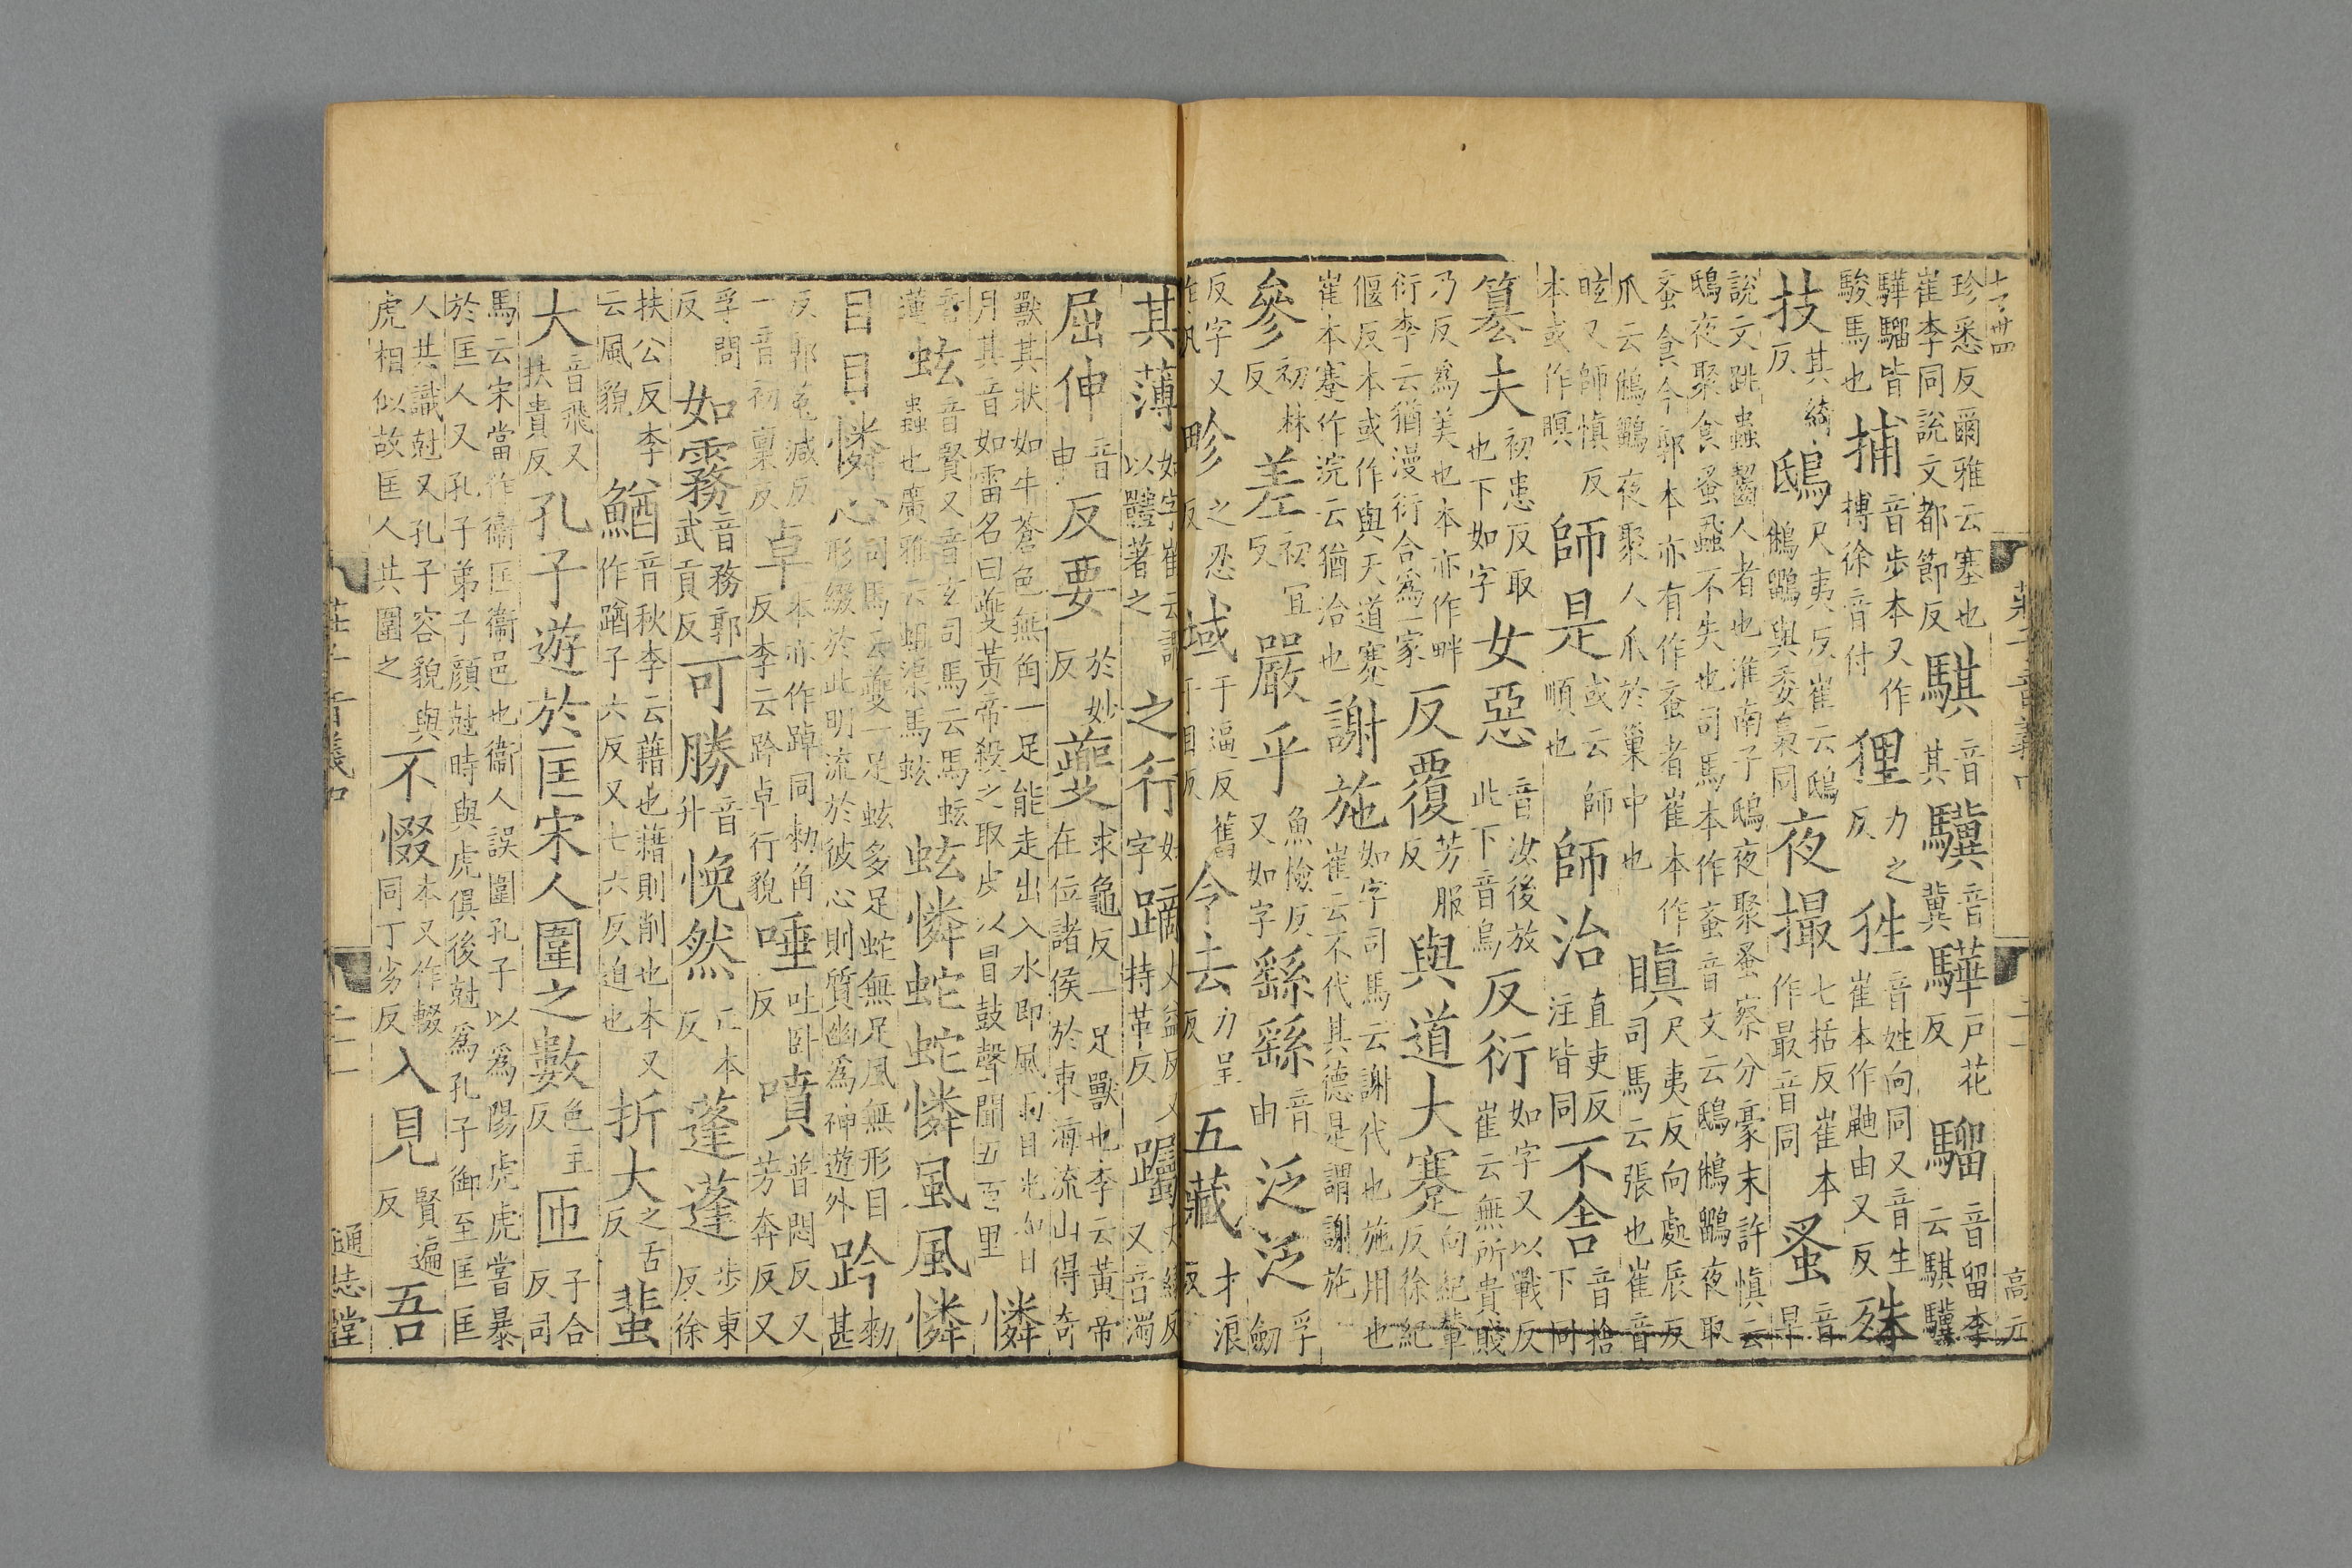 珍悉反爾雅云塞也崔李同說文都節反騏音其驥音冀驊戶花反騮音留李云騏驥
驊騮皆駿馬也捕音步本又作搏徐音付狸力之反狌音姓向同又音生崔本作鼬由又反殊
技其綺反鴟尺夷反崔云鴟鵂鶹與委梟同夜撮七括反崔本作最音同蚤音早
說文跳蟲齧人者也淮南子鴟夜聚蚤察分豪末許愼云鴟夜聚食蚤蝨不失也司馬本作蚉音文云鴟鵂鶹夜取
蚉食今郭本亦有作蚉者崔本作爪云鵂鶹夜聚人爪於巢中也瞋尺夷反向處辰反司馬云張也崔音
眩又師愼反本或作瞑師是或云師順也師治直吏反注皆同不舍音捨下同
篡夫初患反取也下如字女惡音汝後放此下音烏反衍如字又以戰反崔云無所貴賤
乃反爲美也本亦作畔衍李云猶漫衍合爲一家反覆芳服反與道大蹇向紀輦反徐紀
偃反本或作與天道蹇崔本蹇作浣云猶洽也謝施如字司馬云謝代也施用也崔云不代其德是謂謝施
參初林反差初宜反嚴乎魚檢反又如字繇繇音由泛泛孚劒
反字又作汎畛之忍反域于逼反舊于目反今去力呈反五藏才浪反
其薄如字崔云謂以體著之之行如字蹢丈益反又持革反躅丈綠反又音濁
屈伸音申反要於妙反夔求龜反一足獸也李云黃帝在位諸侯於東海流山得奇
獸其狀如牛蒼色無角一足能走出入水即風雨目光如日月其音如雷名曰夔黃帝殺之取皮以冒鼓聲聞五百里憐
音蓮蚿音賢又音玄司馬云馬蚿蟲也廣雅云蛆渠馬蚿蚿憐蛇蛇憐風風憐
目目憐心司馬云夔一足蚿多足蛇無足風無形目形綴於此明流於彼心則質幽爲神遊外趻勑甚
反郭菟減反一音初稟反卓本亦作踔同勑角反李云趻卓行貌唾吐臥反噴普悶反又芳奔反又
孚問反如霧音務郭武貢反可勝音升悗然亡本反蓬蓬步東反徐
扶公反李云風貌鰌音秋李云藉也藉則削也本又作蹫子六反又七六反迫也折大之舌反蜚
大音飛又扶貴反孔子遊於匡宋人圍之數色主反匝子合反司
馬云宋當作衞匡衞邑也衞人誤圍孔子以爲陽虎虎嘗暴於匡人又孔子弟子顏尅時與虎俱後尅爲孔子御至匡匡
人共識尅又孔子容貌與虎相似故匡人共圍之不惙本又作輟同丁劣反入見賢遍反吾
莊子音義中
二十一
通志堂
高元